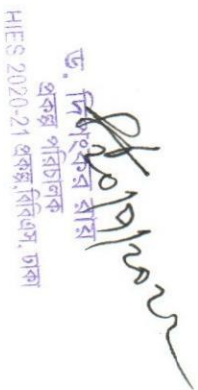 ড. দিপংকর রায়
প্রকল্প পরিচালক
HIES 2020-21 প্রকল্প, বিবিএস, ঢাকা